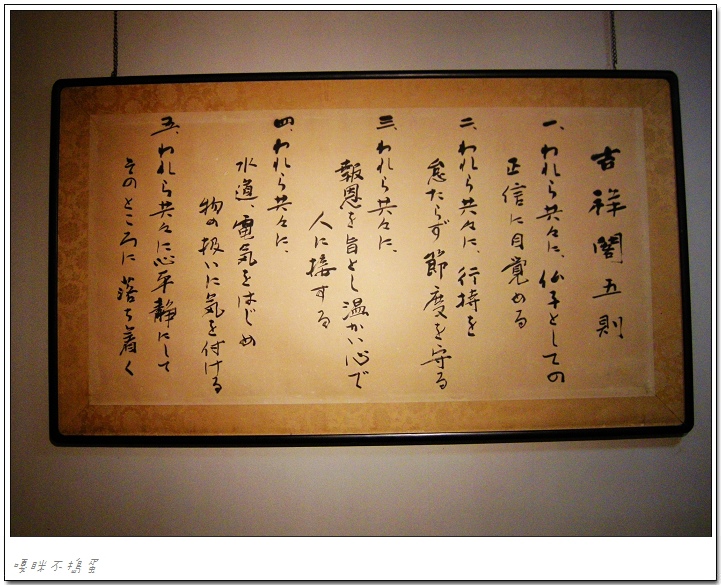 吉祥閣五則
一、われら共々に、仏子としての
正信に目覚める
二、われら共々に、行持を
怠たらず節度を守る
三、われら共々に、
報恩を旨とし温かい心で
人に接する
四、われら共々に、
水道、電気をはじめ
物の扱いに気を付ける
五、われら共々に心平静にして
そのところに落ち着く
嘎眯不搗蛋